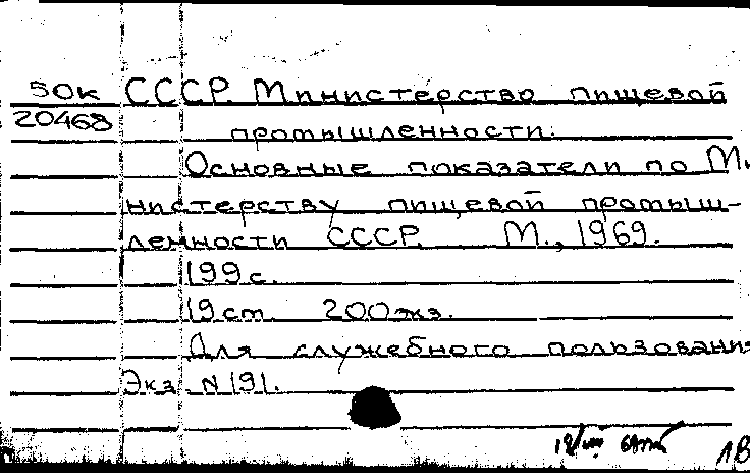 50к СССР. Министерство пищевой
20468 промышленности.
Основные показатели по Ми
нистерству пищевой промыш-
ленности СССР. М., 1969.
199 с.
19 см. 200 экз.
Для служебного пользования
Экз. N 191.
18